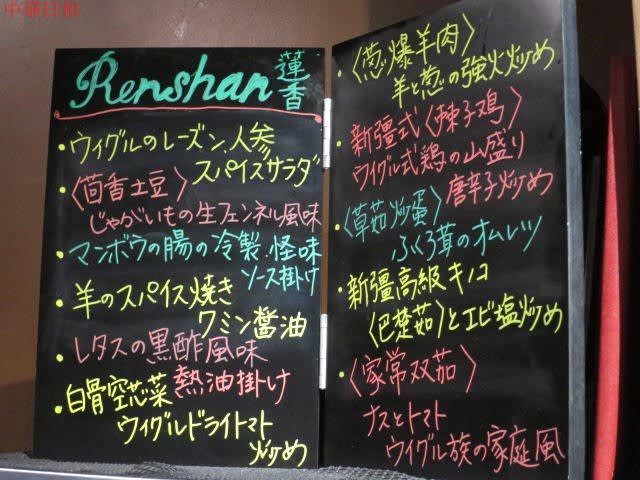 中華日和
Renshan 蓮香
・ウィグルのレーズン、人参
スパイスサラダ
・〈茴香土豆〉
じゃがいもの生フェンネル風味
・マンボウの腸の冷製、怪味
ソース掛け
・羊のスパイス焼き
クミン醤油
・レタスの黒酢風味
熱油掛け
・白骨空芯菜
ウィグルドライトマト
炒め
・〈葱爆羊肉〉
羊と葱の強火炒め
・新疆式〈辣子鶏〉
ウイグル式鶏の山盛り
唐辛子炒め
・〈草菇炒蛋〉
ふくろ茸のオムレツ
・新疆高級キノコ
〈巴楚菇〉とエビ塩炒め
・〈家常双茄〉
ナスとトマト
ウイグル族の家庭風